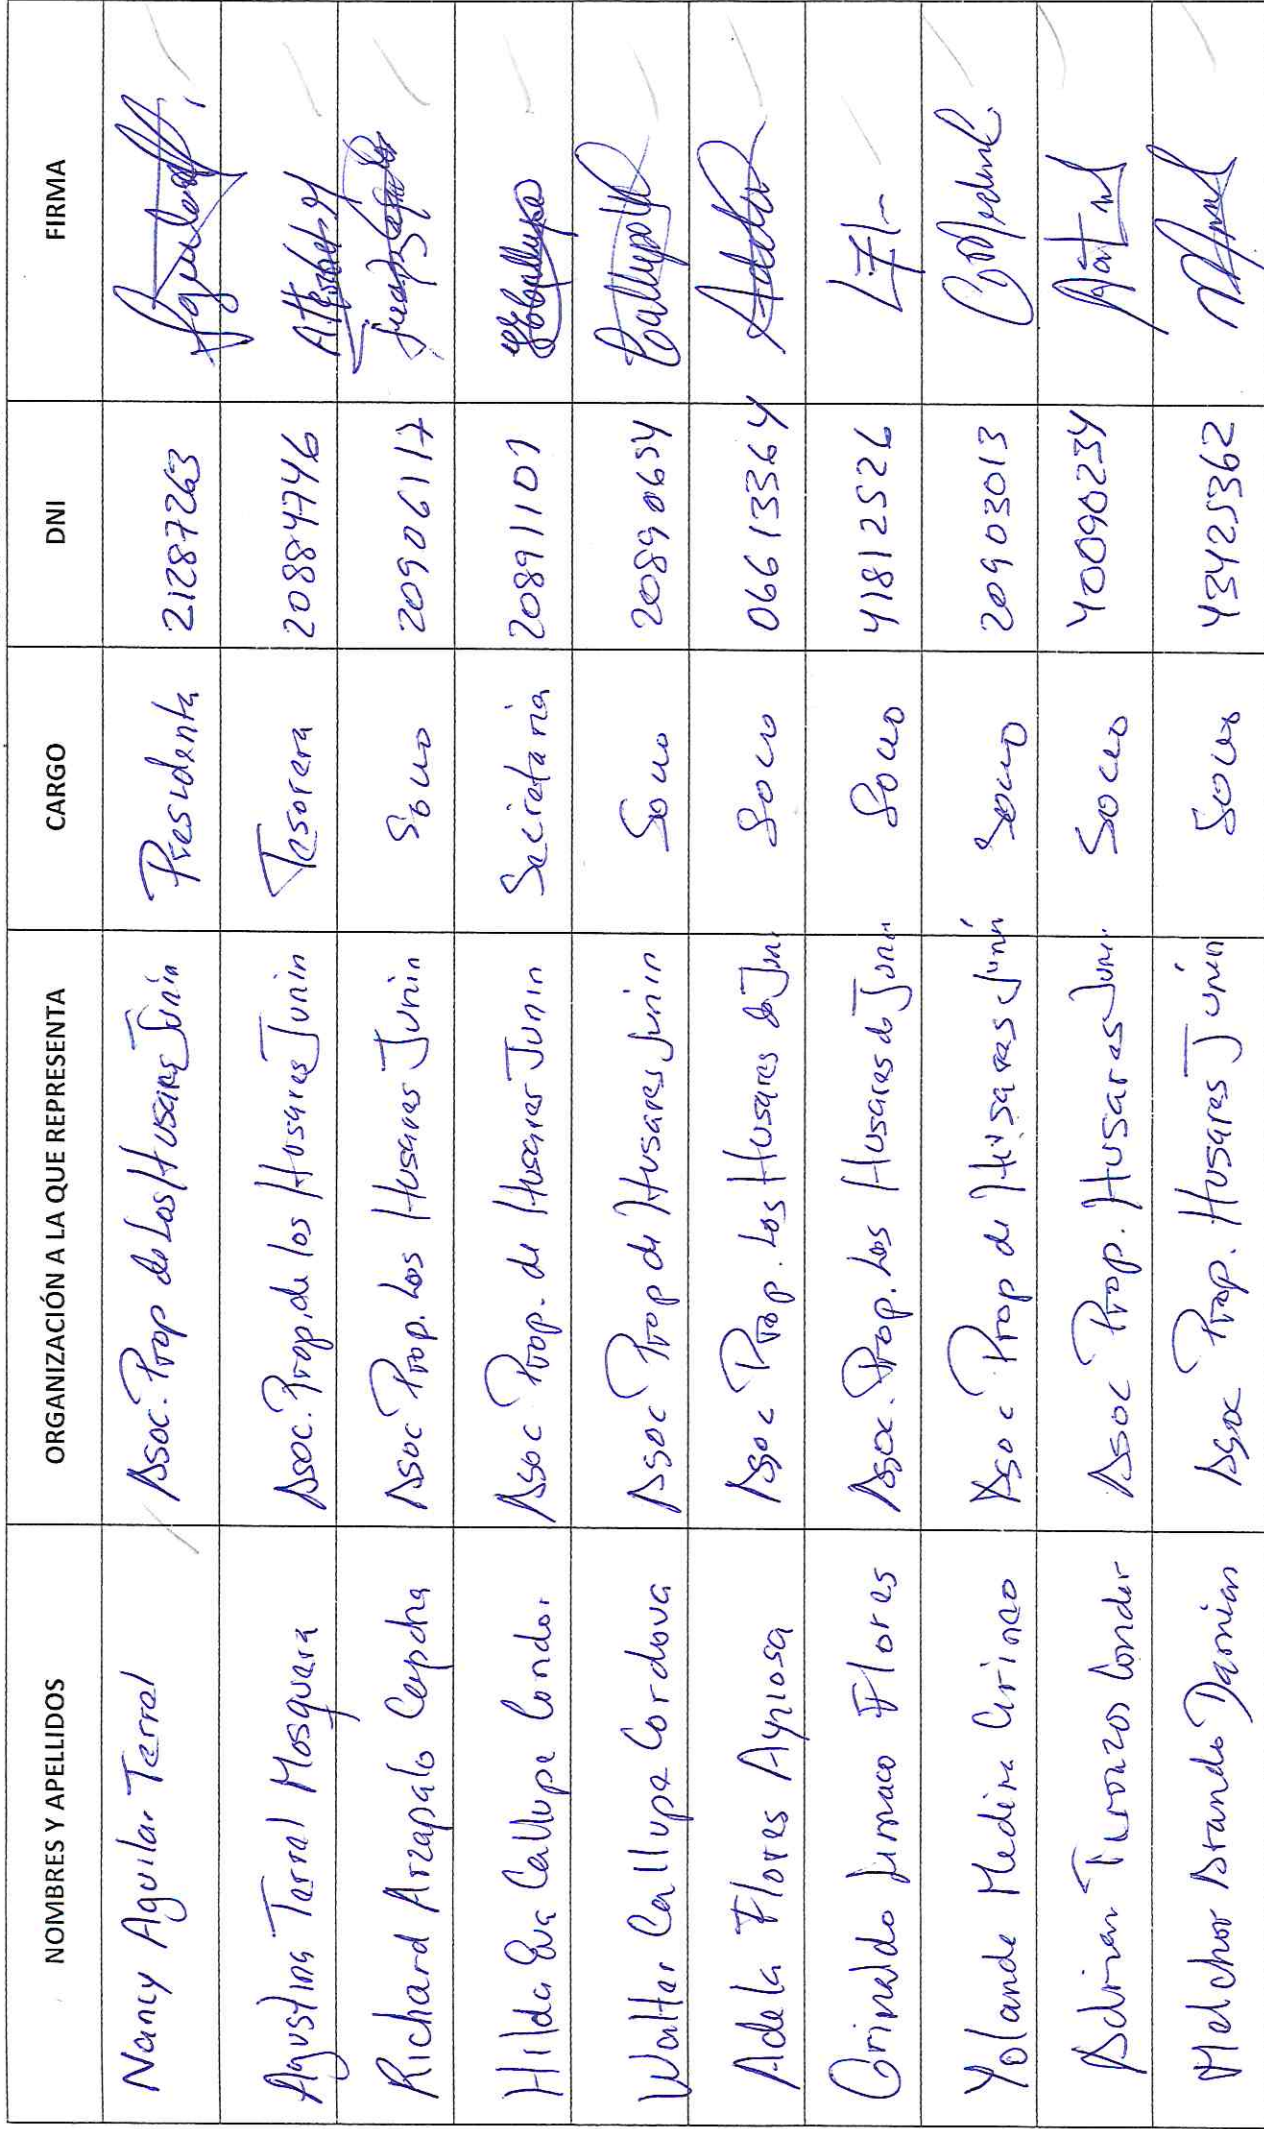 NOMBRES Y APELLIDOS ORGANIZACIÓN A LA QUE REPRESENTA CARGO DNI FIRMA
Nancy Aguilar Terral Asoc. Prop de Los Husares Junin Presidenta 21287263
Agustina Terral Mosquera Asoc. Prop. de los Husares Junin Tesorera 20884746
Richard Arzapalo Capcha Asoc Prop. Los Husares Junin Socio 20906117
Hilda Eva Callupe Condor Asoc Prop. de Husares Junin Secretaria 20891101
Walter Callupe Cordova Asoc Prop de Husares Junin Socio 20890654
Adela Flores Ayniosa Asoc Prop. Los Husares de Jun. Socio 06613364
Grinaldo Limaco Flores Asoc. Prop. Los Husares de Junin Socio 41812526
Yolanda Medina Asoc Prop de Husares Junin Socio 20903013
Adrian Ticonzos Condor Asoc Prop. Husares Junin Socio 40090234
Melchor Damian Asoc Prop. Husares Junin Socio 43425362